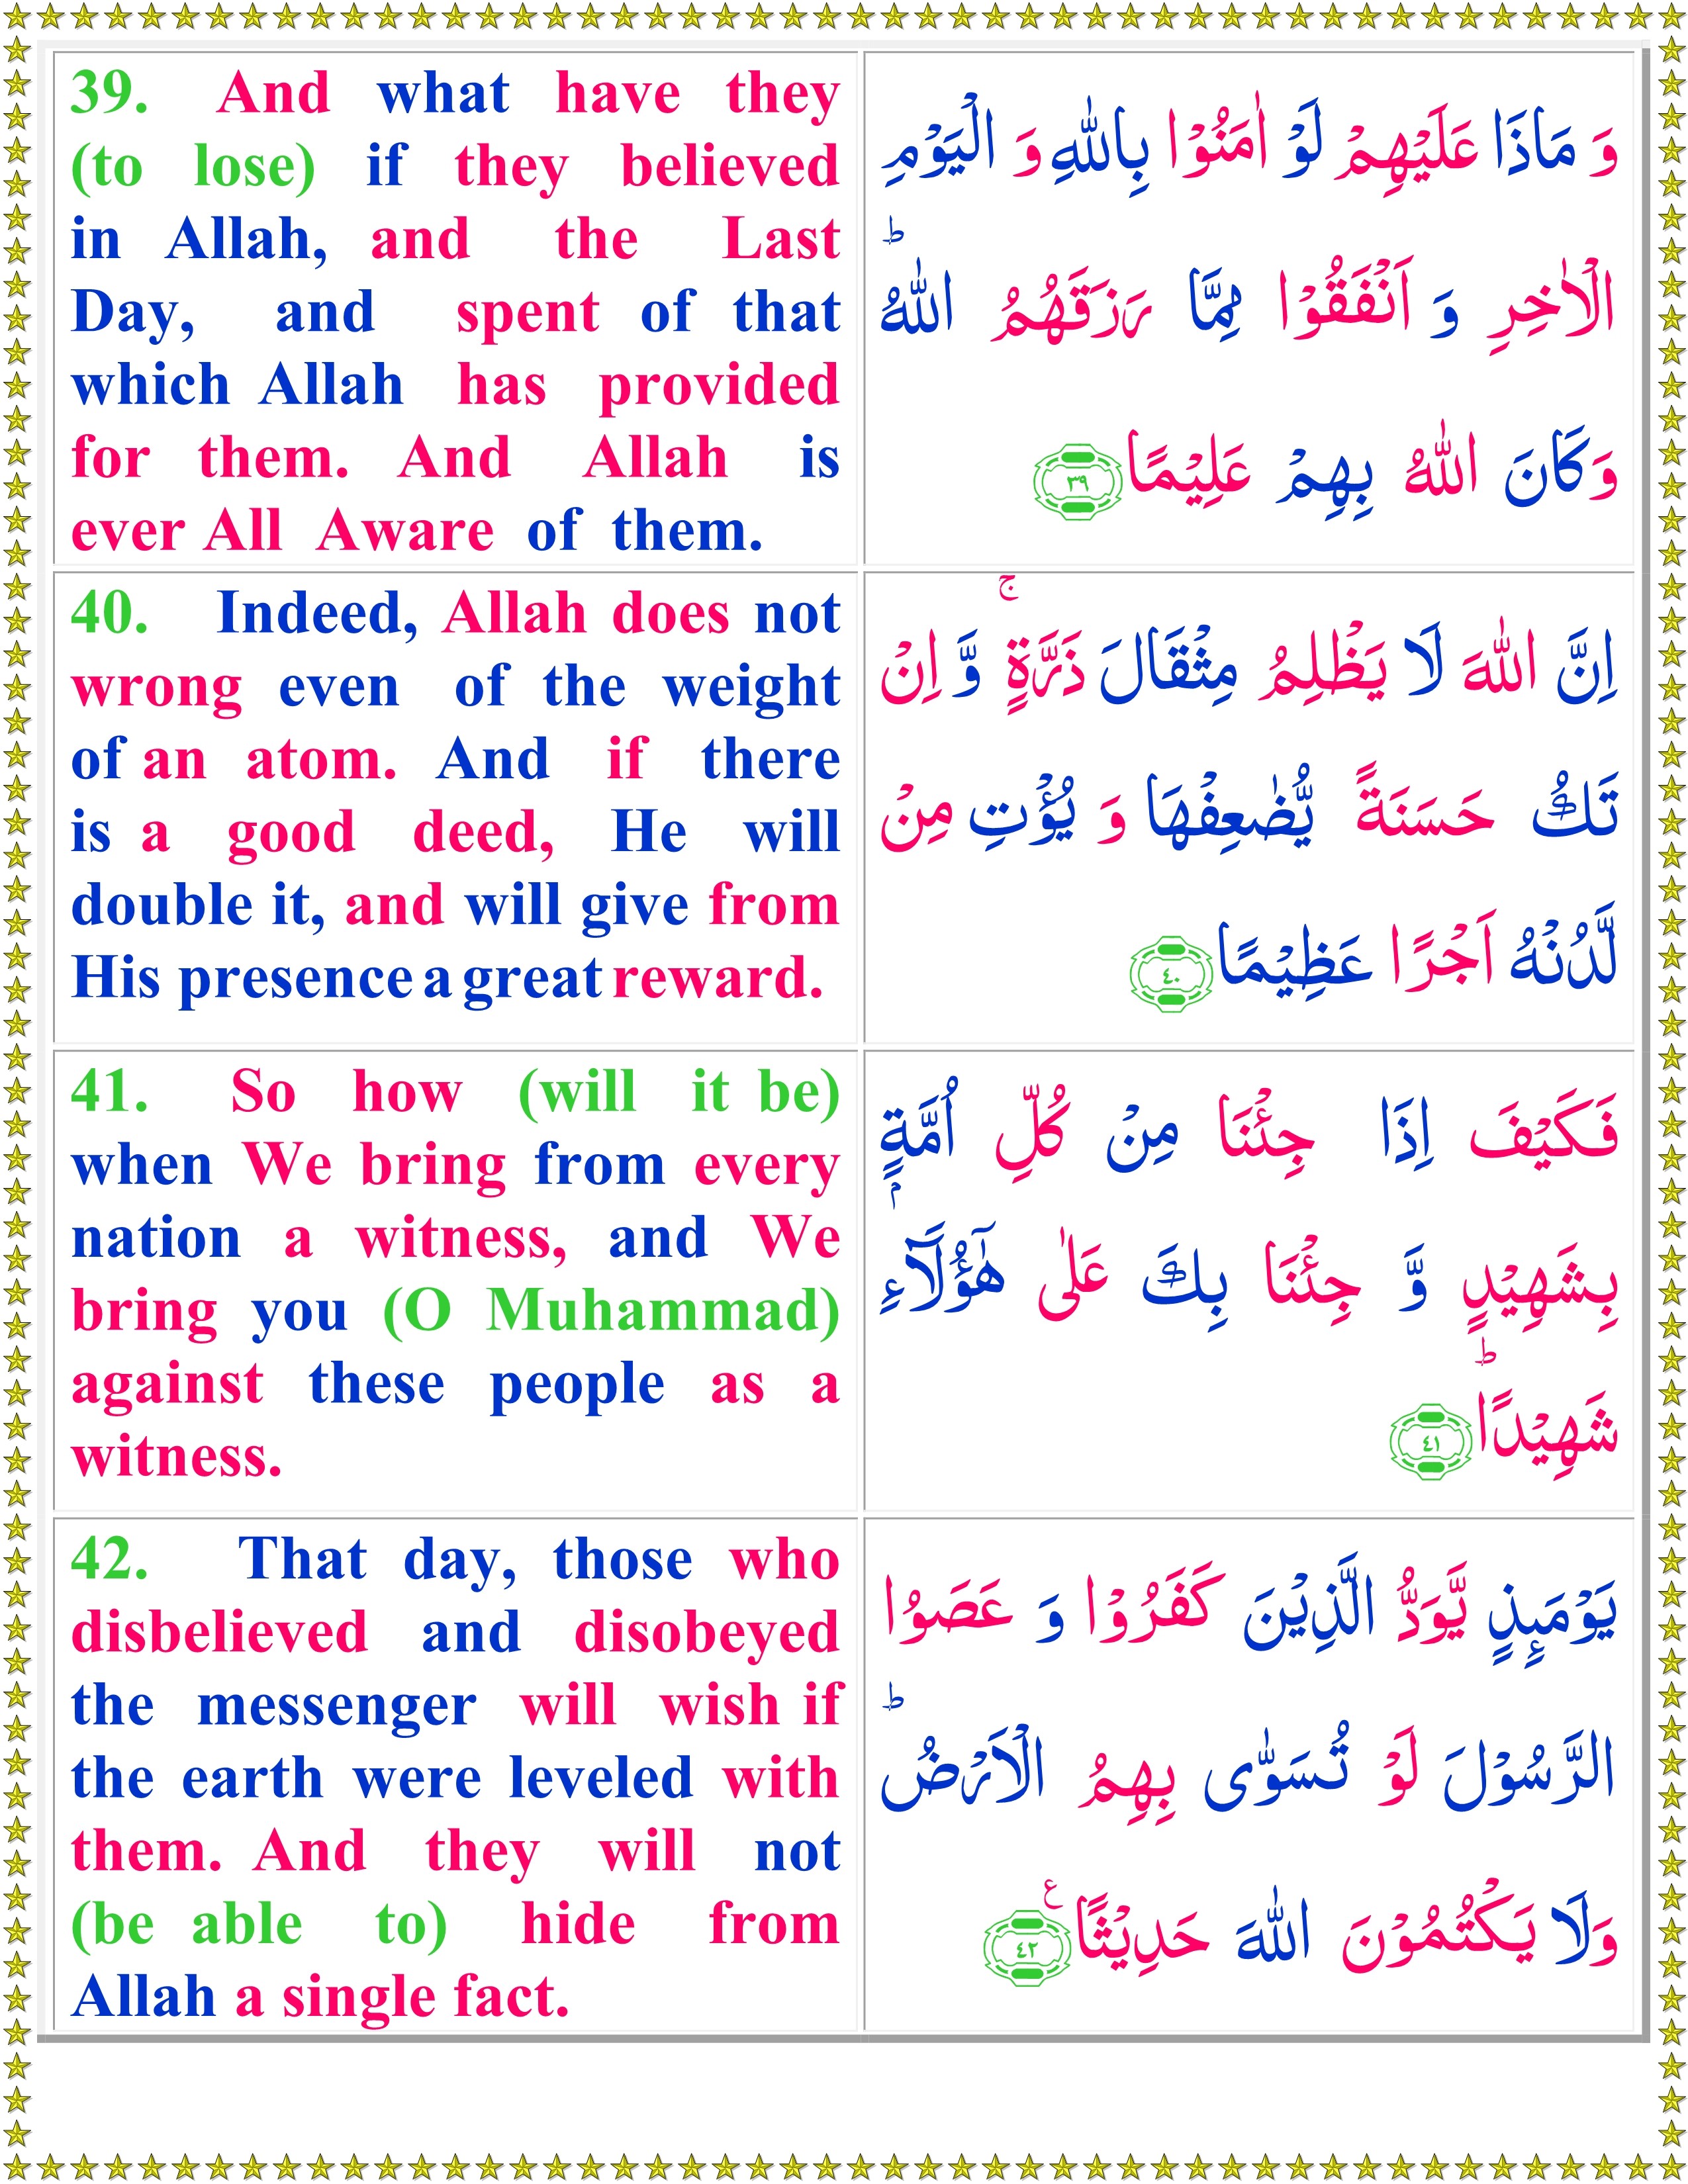 39. And what have they
(to lose) if they believed
in Allah, and the Last
Day, and spent of that
which Allah has provided
for them. And Allah is
ever All Aware of them.
وَ مَاذَا عَلَيْهِمْ لَوْ اٰمَنُوْا بِاللّٰهِ وَ الْيَوْمِ
الْاٰخِرِ وَ اَنْفَقُوْا مِمَّا رَزَقَهُمُ اللّٰهُ ؕ
وَكَانَ اللّٰهُ بِهِمْ عَلِيْمًا ٣٩
40. Indeed, Allah does not
wrong even of the weight
of an atom. And if there
is a good deed, He will
double it, and will give from
His presence a great reward.
اِنَّ اللّٰهَ لَا يَظْلِمُ مِثْقَالَ ذَرَّةٍ ۚ وَّ اِنْ
تَكُ حَسَنَةً يُّضٰعِفْهَا وَ يُؤْتِ مِنْ
لَّدُنْهُ اَجْرًا عَظِيْمًا ٤٠
41. So how (will it be)
when We bring from every
nation a witness, and We
bring you (O Muhammad)
against these people as a
witness.
فَكَيْفَ اِذَا جِئْنَا مِنْ كُلِّ اُمَّةٍۭ
بِشَهِيْدٍ وَّ جِئْنَا بِكَ عَلٰى هٰٓؤُلَآءِ
شَهِيْدًا ؕ ٤١
42. That day, those who
disbelieved and disobeyed
the messenger will wish if
the earth were leveled with
them. And they will not
(be able to) hide from
Allah a single fact.
يَوْمَئِذٍ يَّوَدُّ الَّذِيْنَ كَفَرُوْا وَ عَصَوُا
الرَّسُوْلَ لَوْ تُسَوّٰى بِهِمُ الْاَرْضُ ؕ
وَلَا يَكْتُمُوْنَ اللّٰهَ حَدِيْثًا ع ٤٢